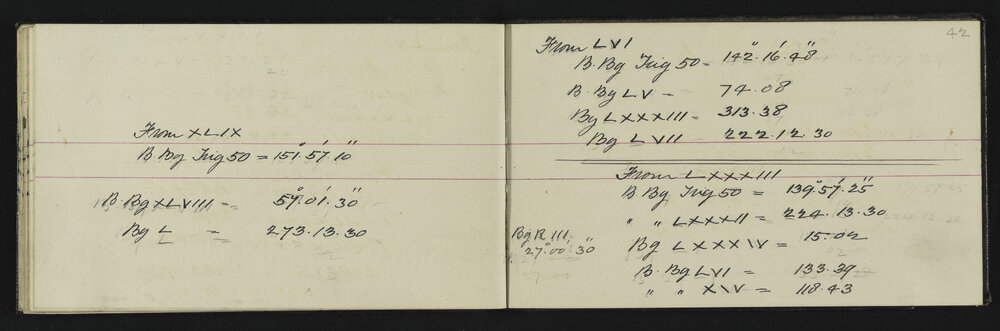 From XLIX
B Bg Trig 50 = 151°.57'.10"
B. Bg XLVIII = 59°.01'.30"
Bg L = 273.13.30
42
From LVI
B. Bg Trig 50 = 142°.16'.48"
B. Bg LV = 74.08
Bg LXXXIII = 313.38
Bg LVII 222.12.30
From LXXXIII
B Bg Trig 50 = 139°.57'.25"
" " LXXXII = 224.13.30
Bg R III
27°.00'.30"
Bg LXXXIV = 15.02
B. Bg LVI = 133.39
" " XIV = 118.43